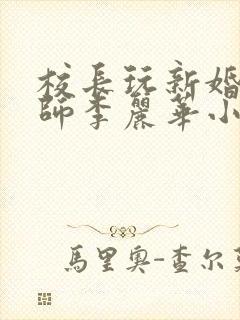 校長玩新婚
師李麗華小
馬里奧-查尔